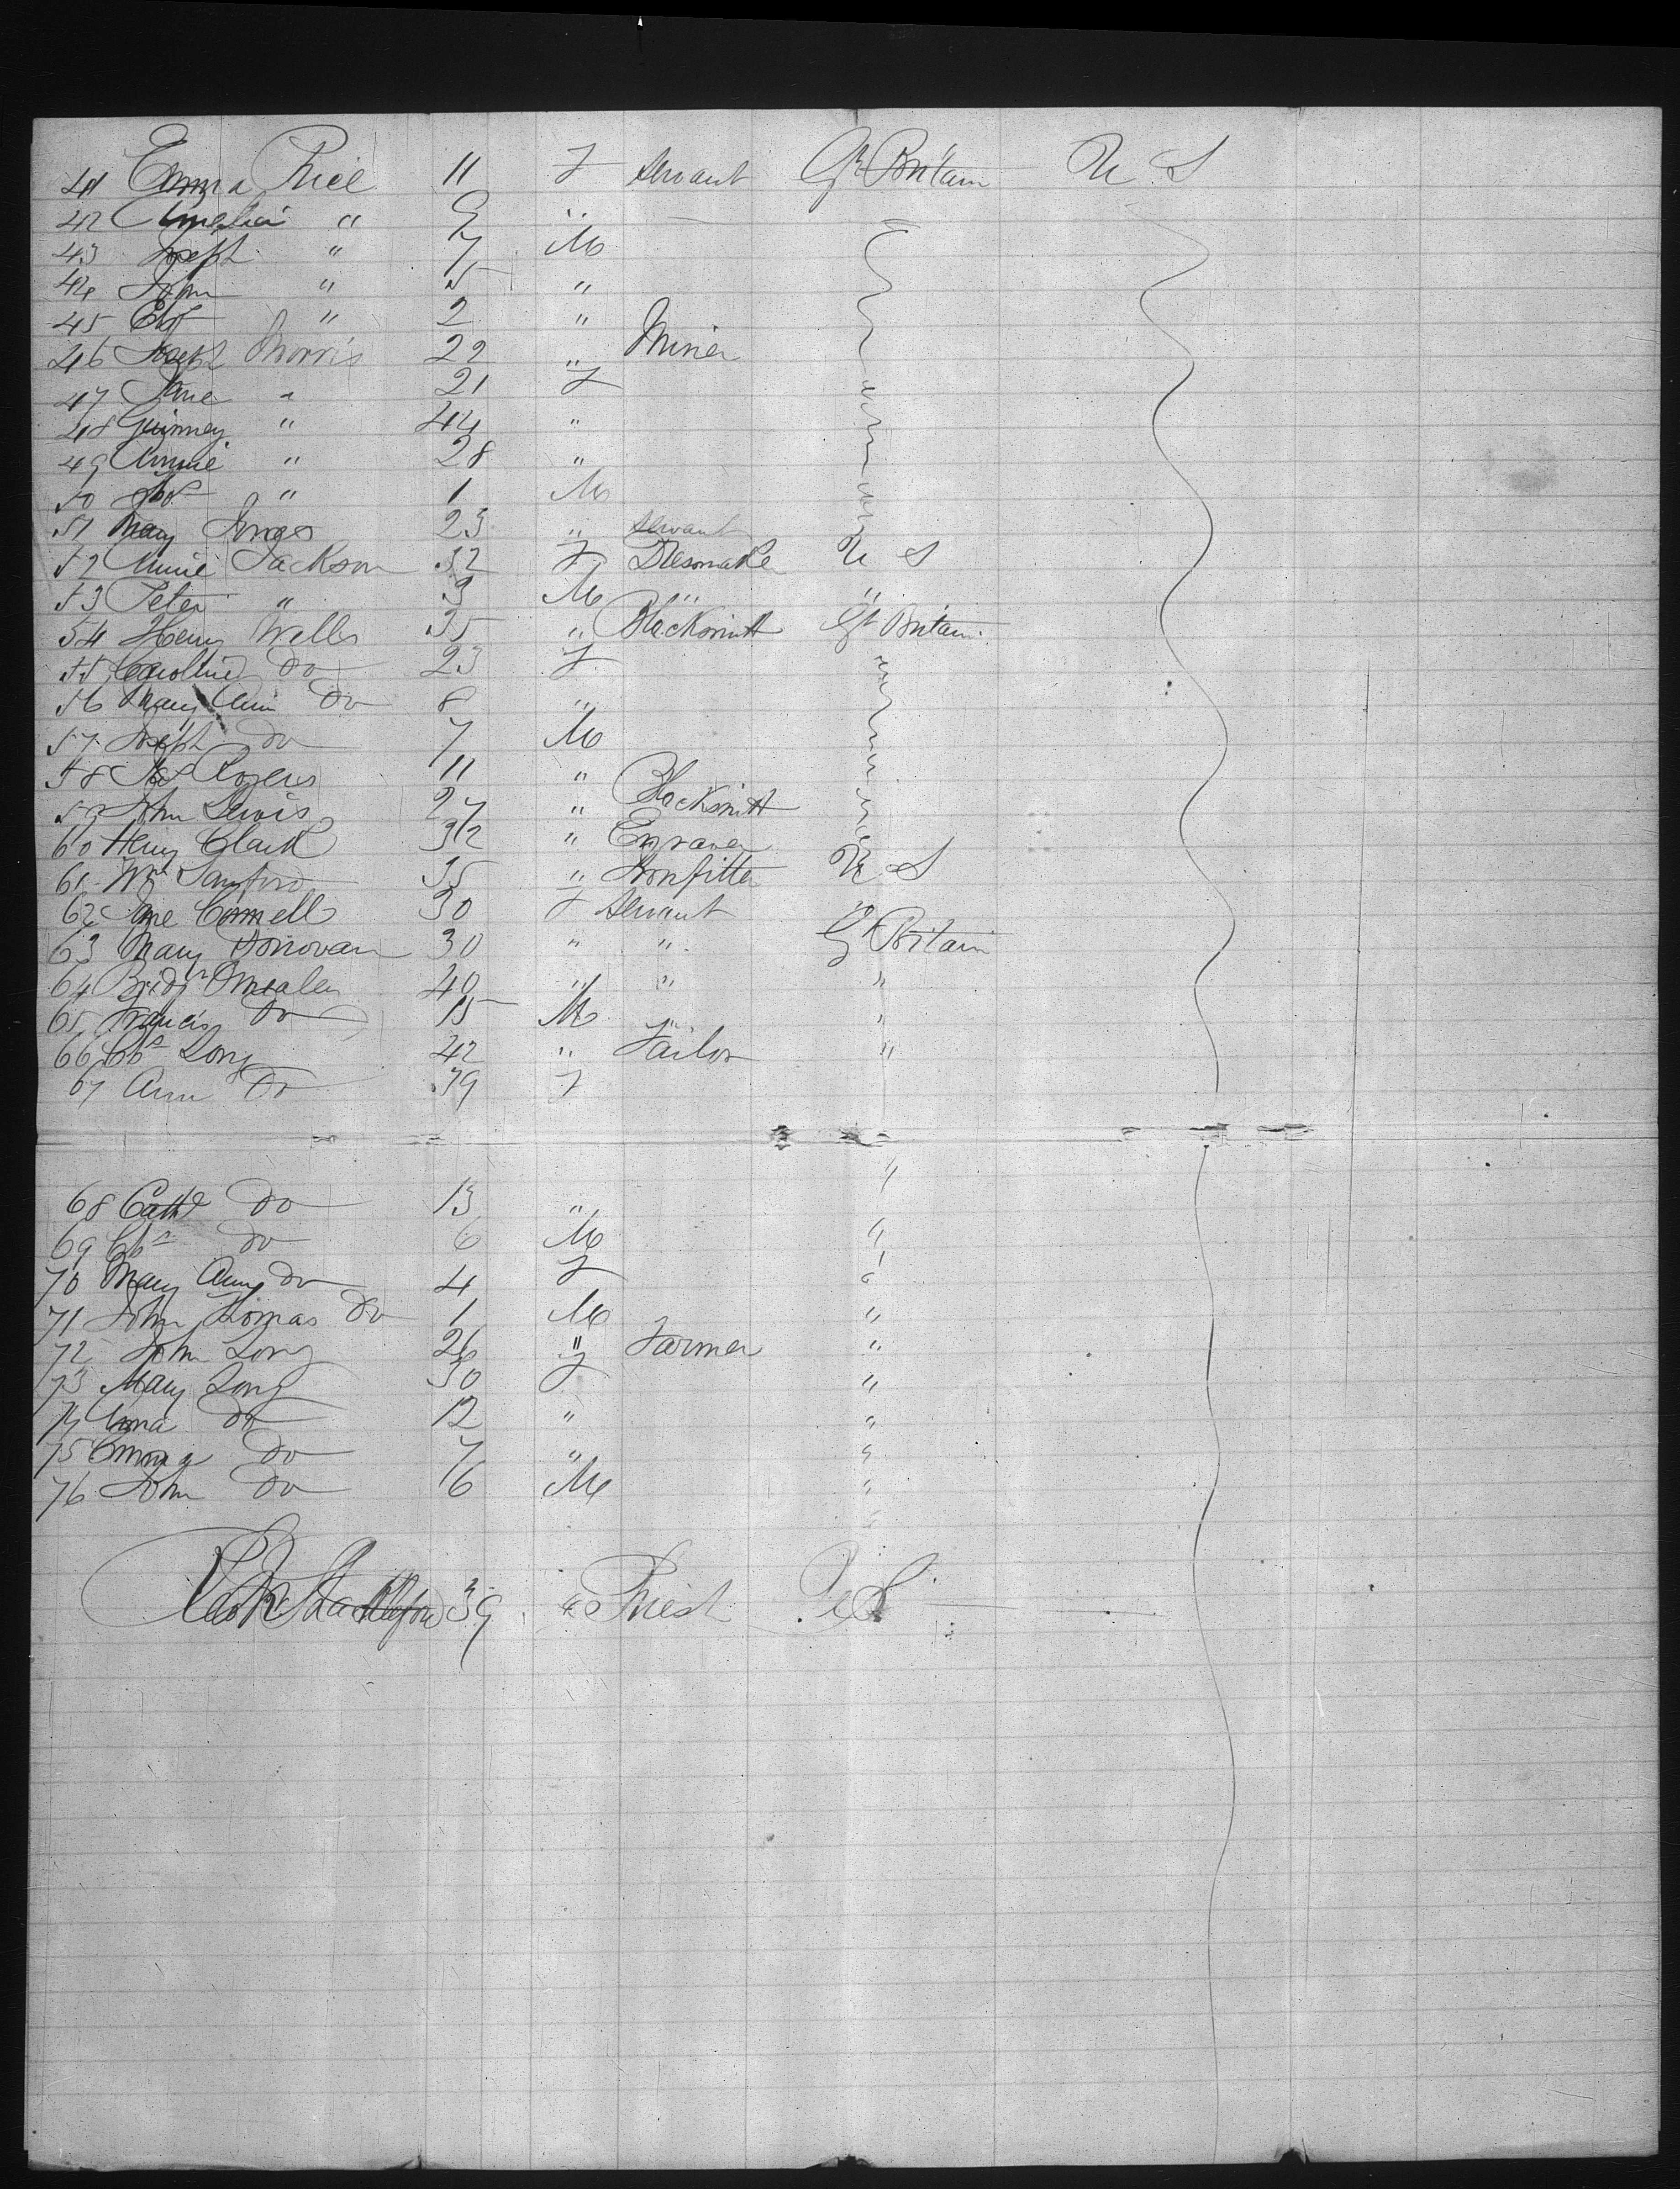 41 Emma Price 11 F Servant Gt Britain U S
42 Amelia " 9 "
43 Joseph " 7 M
44 John " 5 "
45 " 2 "
46 Joseph Morris 22 " Miner
47 Jane " 21 F
48 " 44 "
49 Annie " 28 "
50 " 1 M
51 Mary 23 " Servant
52 Annie Jackson 32 F U S
53 Peter " 3 M " "
54 Henry Wells 35 " Blacksmith Gt Britain
55 Caroline Do 23 F
56 Mary Ann Do 8 "
57 Joseph Do 7 M
58 Rogers 11 "
59 John Lewis 27 " Blacksmith
60 Henry Clark 32 " Engraver
61 Wm Sanford 35 " Ironfitter U S
62 Jane Connell 30 F Servant
63 Mary Donovan 30 " " Gt Britain
64 40 " " "
65 Francis Do 15 M " "
66 Chs Long 42 " Tailor "
67 Ann Do 39 F
"
68 Cathe Do 13 "
69 Chs Do 6 M "
70 Mary Ann Do 4 F "
71 John Thomas Do 1 M "
72 John Long 26 " Farmer "
73 Mary Long 30 F "
74 Anna Do 12 " "
75 Emma Do 7 " "
76 John Do 6 M "
39 Priest